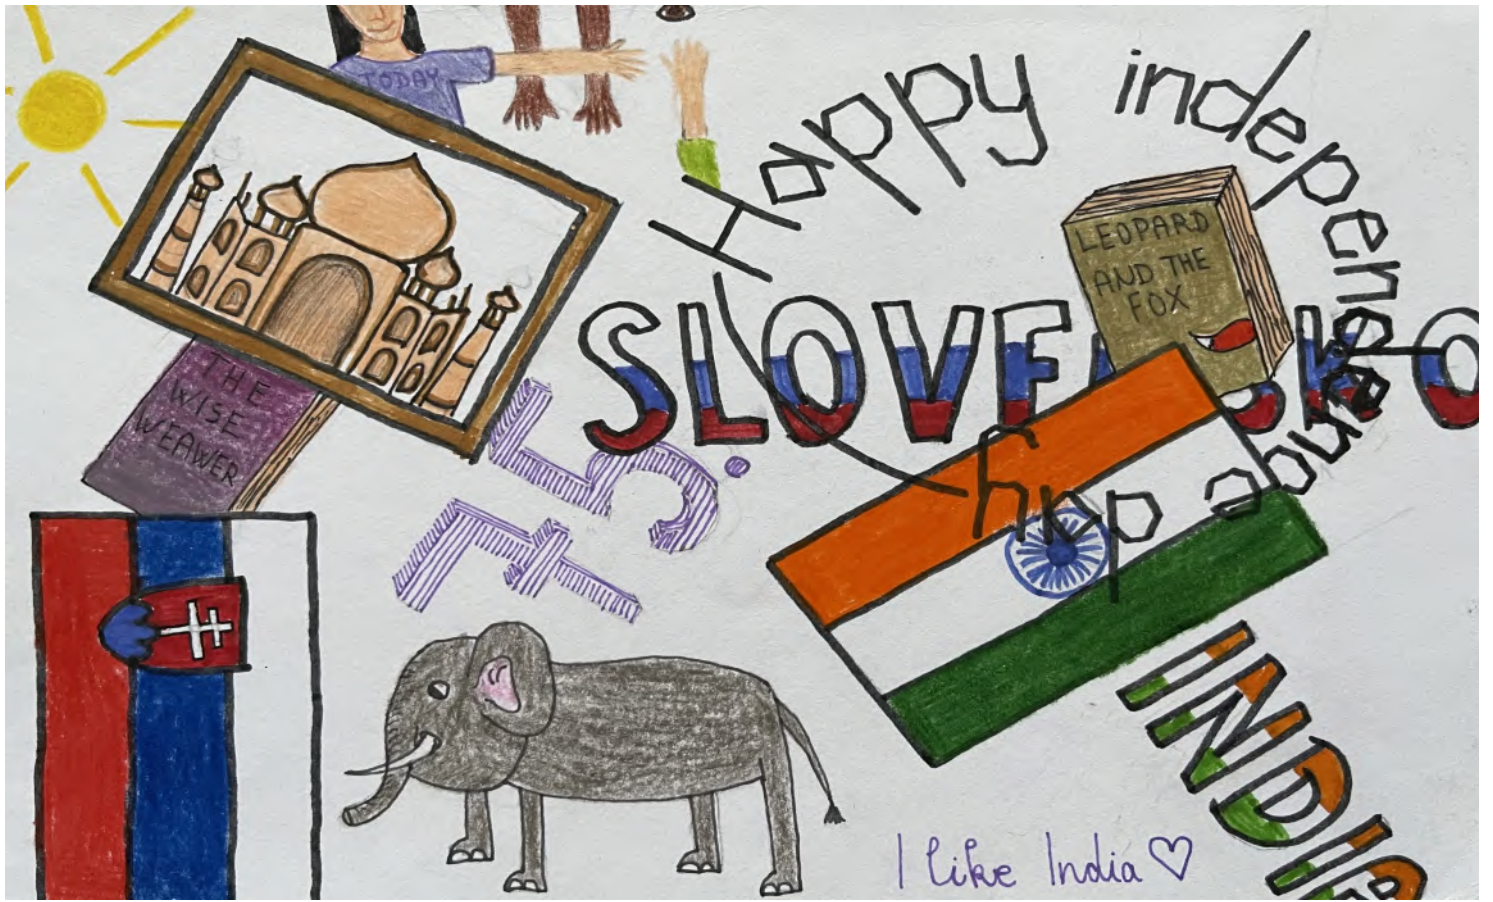 TODAY
Happy independence day
LEOPARD
AND THE
FOX
SLOVENSKO
THE
WISE
WEAWER
75.
INDIA
I like India